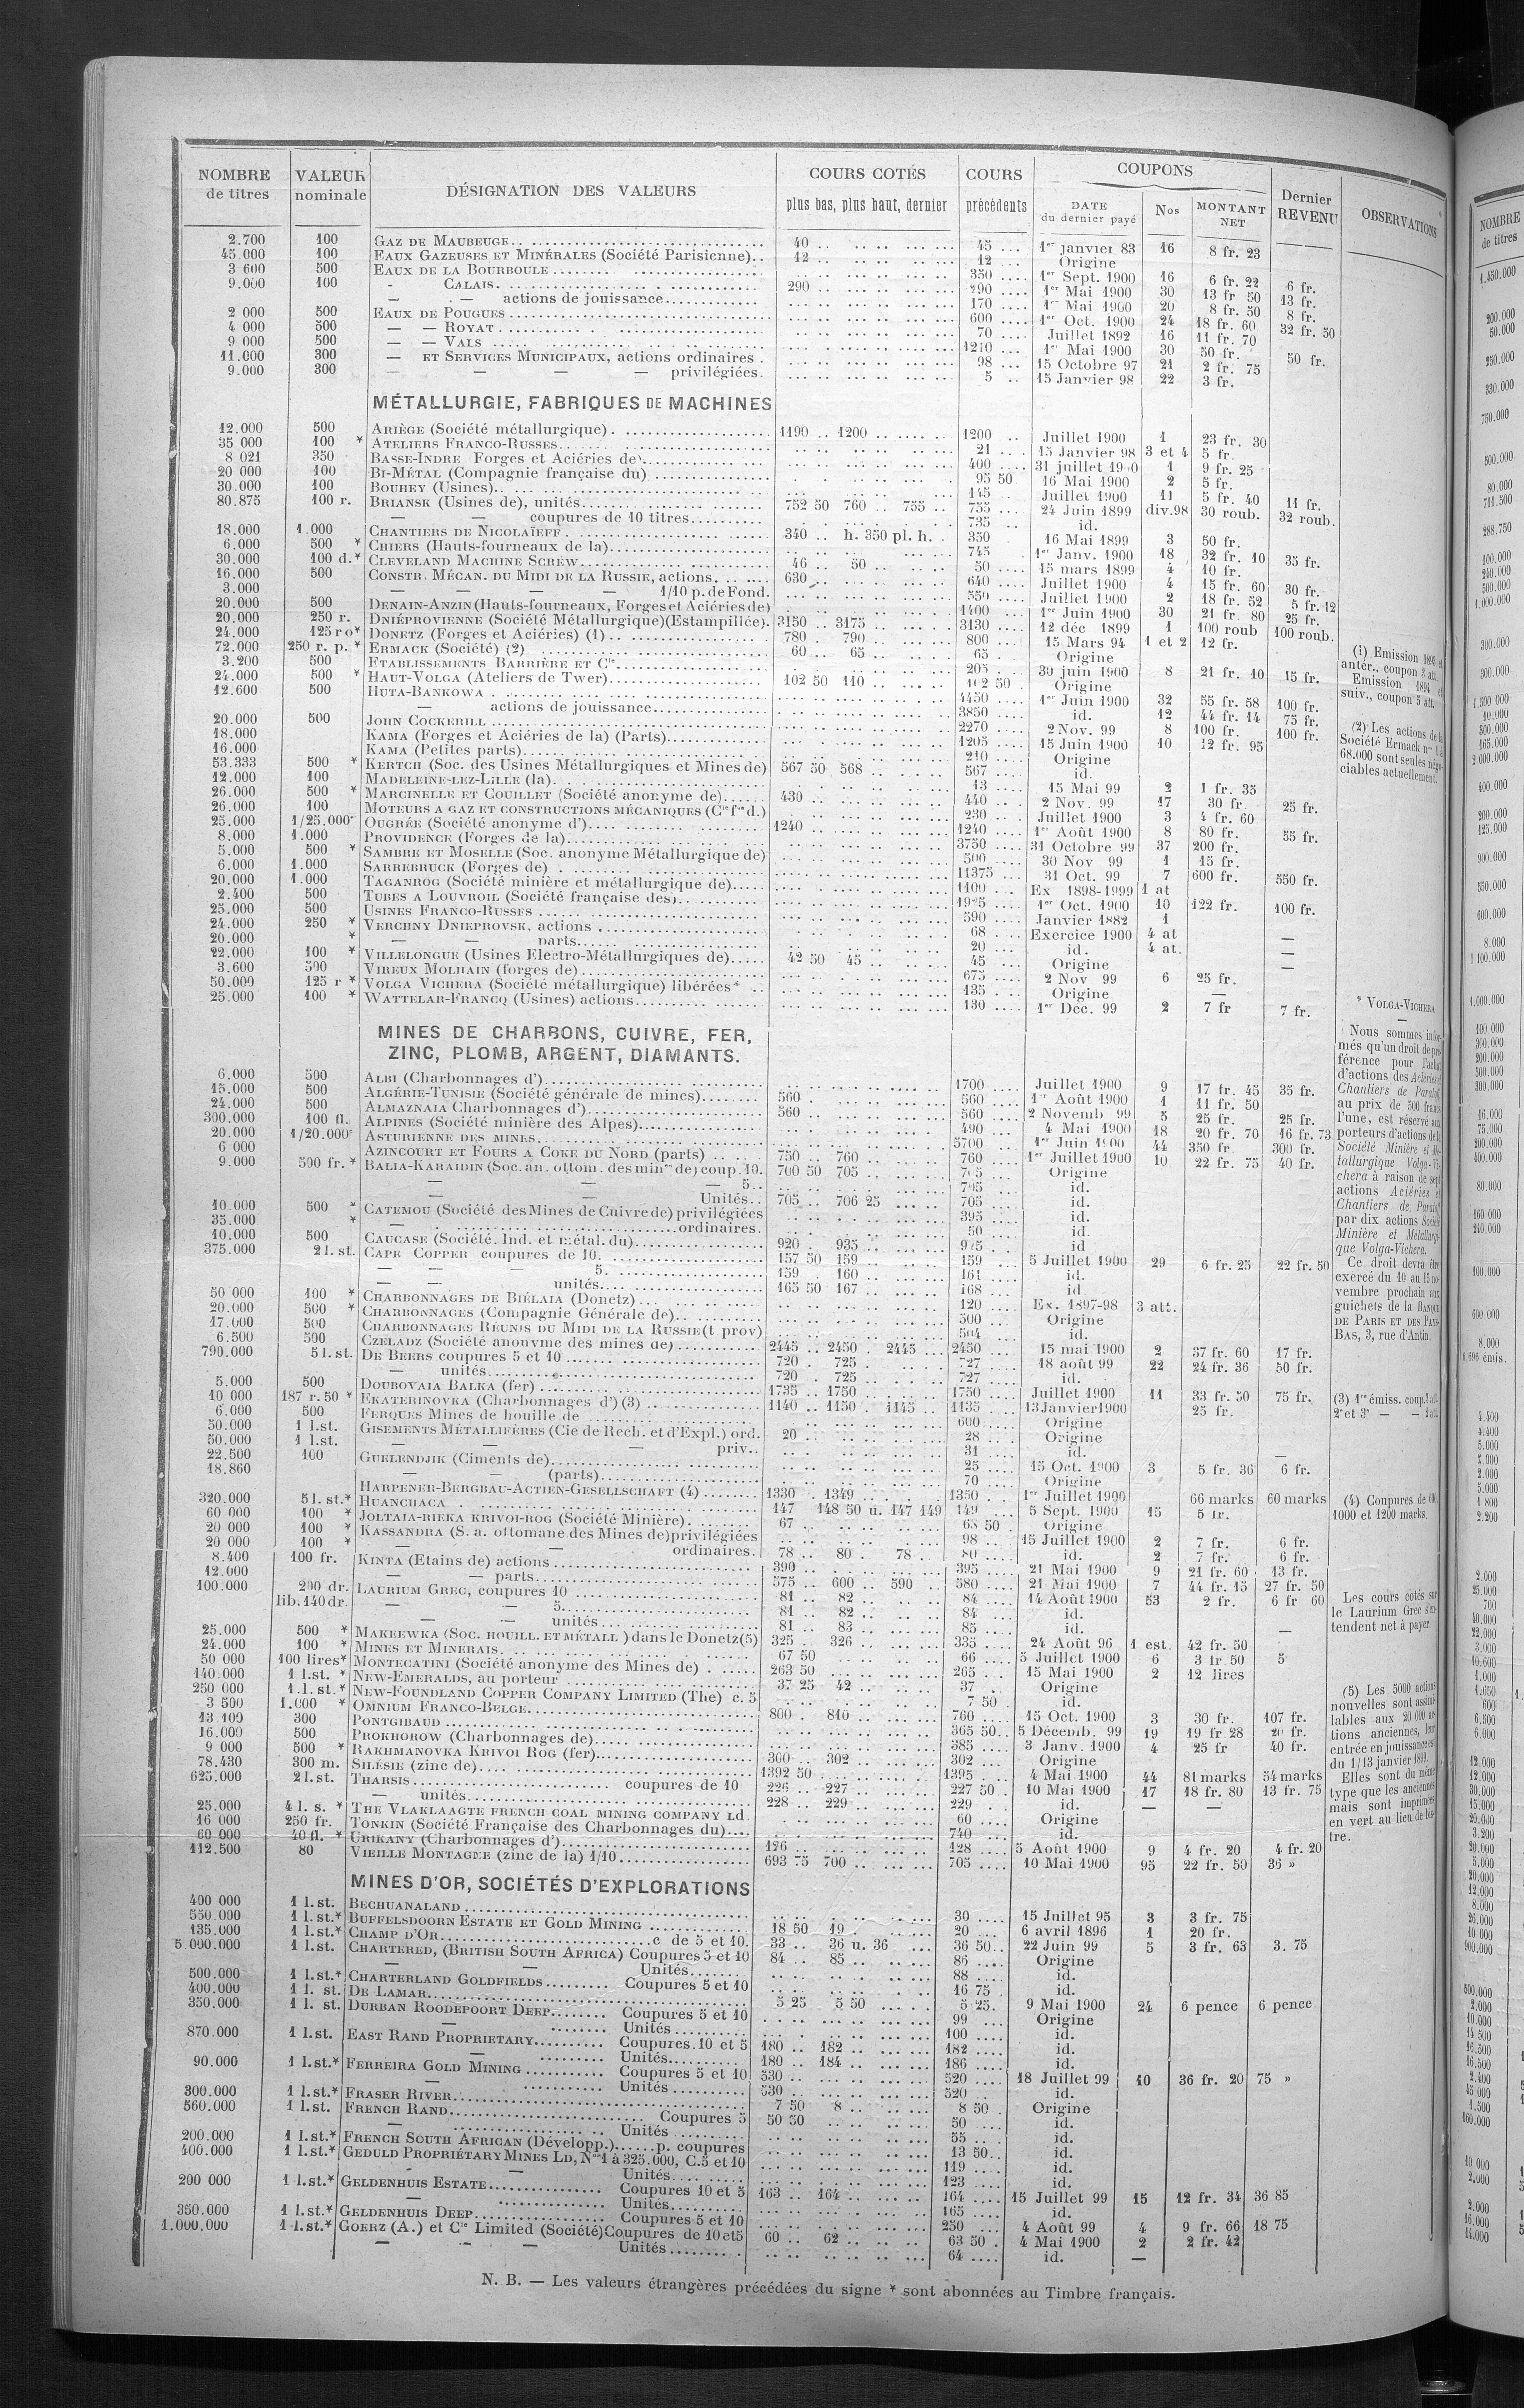 NOMBRE de titres | VALEUR nominale | DÉSIGNATION DES VALEURS | COURS COTÉS plus bas, plus haut, dernier | COURS précédents | COUPONS DATE du dernier payé | Nos | MONTANT NET | Dernier REVENU | OBSERVATIONS
2.700 100 GAZ DE MAUBEUGE 40 45 1er janvier 83 16 8 fr. 23
45.000 100 EAUX GAZEUSES ET MINÉRALES (Société Parisienne) 12 12 Origine
3 600 500 EAUX DE LA BOURBOULE 350 1er Sept. 1900 16 6 fr. 22 6 fr.
9.000 100 - CALAIS 290 290 1er Mai 1900 30 13 fr 50 13 fr.
— — actions de jouissance 170 1er Mai 1900 20 8 fr. 50 8 fr.
2 000 500 EAUX DE POUGUES 600 1er Oct. 1900 24 18 fr. 60 32 fr. 50
4 000 500 — — ROYAT 70 Juillet 1892 16 11 fr. 70
9 000 500 — — VALS 1210 1er Mai 1900 30 50 fr. 50 fr.
11.000 300 — ET SERVICES MUNICIPAUX, actions ordinaires 98 15 Octobre 97 21 2 fr. 75
9.000 300 — — — — privilégiées 5 15 Janvier 98 22 3 fr.
MÉTALLURGIE, FABRIQUES DE MACHINES
12.000 500 ARIÈGE (Société métallurgique) 1190 1200 1200 Juillet 1900 1 23 fr. 30
35 000 100 * ATELIERS FRANCO-RUSSES 21 15 Janvier 98 3 et 4 5 fr.
8 021 350 BASSE-INDRE Forges et Aciéries de) 400 31 juillet 1900 1 9 fr. 25
20 000 100 BI-MÉTAL (Compagnie française du) 95 50 16 Mai 1900 2 5 fr.
30.000 100 BOUHEY (Usines) 145 Juillet 1900 11 5 fr. 40 11 fr.
80.875 100 r. BRIANSK (Usines de), unités 752 50 760 755 755 24 Juin 1899 div.98 30 roub. 32 roub.
— — coupures de 10 titres 735 id.
18.000 1.000 CHANTIERS DE NICOLAÏEFF 340 h. 350 pl. h. 350 16 Mai 1899 3 50 fr.
6.000 500 * CHIERS (Hauts-fourneaux de la) 745 1er Janv. 1900 18 32 fr. 10 35 fr.
30.000 100 d.* CLEVELAND MACHINE SCREW 46 50 50 15 mars 1899 4 10 fr.
16.000 500 CONSTR. MÉCAN. DU MIDI DE LA RUSSIE, actions 630 640 Juillet 1900 4 15 fr. 60 30 fr.
3.000 — — — — 1/10 p. de Fond. 550 Juillet 1900 2 18 fr. 52 5 fr. 12
20.000 500 DENAIN-ANZIN (Hauts-fourneaux, Forges et Aciéries de) 1400 1er Juin 1900 30 21 fr. 80 25 fr.
20.000 250 r. DNIÉPROVIENNE (Société Métallurgique)(Estampillée) 3150 3175 3130 12 déc 1899 1 100 roub 100 roub.
24.000 125 ro* DONETZ (Forges et Aciéries) (1) 780 790 800 15 Mars 94 1 et 2 12 fr.
72.000 250 r. p. * ERMACK (Société) (2) 60 65 65 Origine
3.200 500 ETABLISSEMENTS BARRIÈRE ET Cie 205 30 juin 1900 8 21 fr. 10 15 fr.
24.000 500 * HAUT-VOLGA (Ateliers de Twer) 102 50 110 102 50 Origine
12.600 500 HUTA-BANKOWA 4450 1er Juin 1900 32 55 fr. 58 100 fr.
— actions de jouissance 3850 id. 12 44 fr. 14 75 fr.
20.000 500 JOHN COCKERILL 2270 2 Nov. 99 8 100 fr. 100 fr.
18.000 KAMA (Forges et Aciéries de la) (Parts) 1205 15 Juin 1900 10 12 fr. 95
16.000 KAMA (Petites parts) 210 Origine
53.333 500 * KERTCH (Soc. des Usines Métallurgiques et Mines de) 567 50 568 567 id.
12.000 100 MADELEINE-LEZ-LILLE (la) 13 15 Mai 99 2 1 fr. 35
26.000 500 * MARCINELLE ET COUILLET (Société anonyme de) 430 440 2 Nov. 99 17 30 fr. 25 fr.
26.000 100 MOTEURS A GAZ ET CONSTRUCTIONS MÉCANIQUES (Cie fse d.) 230 Juillet 1900 3 4 fr. 60
25.000 1/25.000e OUGRÉE (Société anonyme d') 1240 1240 1er Août 1900 8 80 fr. 55 fr.
8.000 1.000 PROVIDENCE (Forges de la) 3750 31 Octobre 99 37 200 fr.
5.000 500 * SAMBRE ET MOSELLE (Soc. anonyme Métallurgique de) 500 30 Nov 99 1 15 fr.
6.000 1.000 SARREBRUCK (Forges de) 11375 31 Oct. 99 7 600 fr. 550 fr.
20.000 1.000 TAGANROG (Société minière et métallurgique de) 1100 Ex 1898-1999 1 at
2.400 500 TUBES A LOUVROIL (Société française des) 1er Oct. 1900 10 122 fr. 100 fr.
25.000 500 USINES FRANCO-RUSSES 590 Janvier 1882 1
24.000 250 * VERCHNY DNIEPROVSK, actions 68 Exercice 1900 4 at —
20.000 * — — parts 20 id. 4 at. —
22.000 100 * VILLELONGUE (Usines Electro-Métallurgiques de) 42 50 45 45 Origine —
3.600 500 VIREUX MOLHAIN (forges de) 675 2 Nov 99 6 25 fr.
50.000 125 r * VOLGA VICHERA (Société métallurgique) libérées* 135 Origine —
25.000 100 * WATTELAR-FRANCQ (Usines) actions 130 1er Déc. 99 2 7 fr 7 fr.
MINES DE CHARBONS, CUIVRE, FER,
ZINC, PLOMB, ARGENT, DIAMANTS.
6.000 500 ALBI (Charbonnages d') 1700 Juillet 1900 9 17 fr. 45 35 fr.
15.000 500 ALGÉRIE-TUNISIE (Société générale de mines) 560 560 1er Août 1900 1 11 fr. 50
24.000 500 ALMAZNAIA Charbonnages d') 560 560 2 Novemb 99 5 25 fr. 25 fr.
300.000 100 fl. ALPINES (Société minière des Alpes) 490 4 Mai 1900 18 20 fr. 70 16 fr. 73
20.000 1/20.000e ASTURIENNE DES MINES 5700 1er Juin 1900 44 350 fr. 300 fr.
6 000 AZINCOURT ET FOURS A COKE DU NORD (parts) 750 760 760 1er Juillet 1900 10 22 fr. 75 40 fr.
9.000 500 fr. * BALIA-KARAIDIN (Soc. an. ottom. des mines de) coup. 10. 700 50 705 705 Origine
— — — 5 705 id.
— — Unités 705 706 25 705 id.
10.000 500 * CATEMOU (Société des Mines de Cuivre de) privilégiées 395 id.
35.000 * — ordinaires. 50 id.
10.000 500 CAUCASE (Société. Ind. et métal. du) 920 935 id
375.000 2 l. st. CAPE COPPER coupures de 10. 157 50 159 159 5 Juillet 1900 29 6 fr. 25 22 fr. 50
— — — 5. 159 160 161 id.
— — unités 165 50 167 168 id
50 000 100 * CHARBONNAGES DE BIÉLAIA (Donetz) 120 Ex. 1897-98 3 att.
20.000 500 * CHARBONNAGES (Compagnie Générale de) 500 Origine
17.000 500 CHARBONNAGES RÉUNIS DU MIDI DE LA RUSSIE (t prov) 504 id.
6.500 500 CZELADZ (Société anonyme des mines de) 2445 2450 2445 2450 15 mai 1900 2 37 fr. 60 17 fr.
790.000 5 l. st. DE BEERS coupures 5 et 10 720 725 727 18 août 99 22 24 fr. 36 50 fr.
— unités 720 725 727 id.
5.000 500 DOUBOVAIA BALKA (fer) 1735 1750 1750 Juillet 1900 11 33 fr. 50 75 fr.
10 000 187 r. 50 * EKATERINOVKA (Charbonnages d') (3) 1140 1150 1145 1135 13 Janvier 1900 25 fr.
6.000 500 FERQUES Mines de houille de 600 Origine
50.000 1 l.st. GISEMENTS MÉTALLIFÈRES (Cie de Rech. et d'Expl.) ord. 20 28 Origine
50.000 1 l.st. — — — priv. 31 id.
22.500 100 GUELENDJIK (Ciments de) 25 15 Oct. 1900 3 5 fr. 36 6 fr.
18.860 — — (parts) 70 Origine
HARPENER-BERGBAU-ACTIEN-GESELLSCHAFT (4) 1330 1349 1350 1er Juillet 1900 66 marks 60 marks
320.000 5 l. st.* HUANCHACA 147 148 50 u. 147 149 149 5 Sept. 1900 15 5 fr.
60 000 100 * JOLTAIA-RIEKA KRIVOI-ROG (Société Minière) 67 68 50 Origine
20 000 100 * KASSANDRA (S. a. ottomane des Mines de) privilégiées 98 15 Juillet 1900 2 7 fr. 6 fr.
20 000 100 * — — ordinaires. 78 80 78 80 id. 2 7 fr. 6 fr.
8.400 100 fr. KINTA (Etains de) actions 390 395 21 Mai 1900 9 21 fr. 60 13 fr.
12.000 — — parts 575 600 590 580 21 Mai 1900 7 44 fr. 15 27 fr. 50
100.000 200 dr. LAURIUM GREC, coupures 10 81 82 84 14 Août 1900 53 2 fr. 6 fr 60
lib. 140 dr. — — 5. 81 82 84 id.
— — unités 81 83 85 id.
25.000 500 * MAKEEWKA (SOC. HOUILL. ET MÉTALL ) dans le Donetz (5) 325 326 335 24 Août 96 1 est. 42 fr. 50
24.000 100 * MINES ET MINERAIS 67 50 66 5 Juillet 1900 6 3 fr. 50 5
50 000 100 lires* MONTECATINI (Société anonyme des Mines de) 263 50 265 15 Mai 1900 2 12 lires
140.000 1 l.st. * NEW-EMERALDS, au porteur 37 25 42 37 Origine
250 000 1.l.st. * NEW-FOUNDLAND COPPER COMPANY LIMITED (The) c. 5 7 50 id.
3 500 1.000 * OMNIUM FRANCO-BELGE 800 810 760 15 Oct. 1900 3 30 fr. 107 fr.
13.100 300 PONTGIBAUD 365 50 5 Décemb. 99 19 19 fr. 28 20 fr.
16.000 500 PROKHOROW (Charbonnages de) 385 3 Janv. 1900 4 25 fr 40 fr.
9 000 500 * RAKHMANOVKA KRIVOI ROG (fer) 300 302 302 Origine
78.430 300 m. SILÉSIE (zinc de) 1392 50 1395 4 Mai 1900 44 81 marks 54 marks
625.000 2 l. st. THARSIS coupures de 10 226 227 227 50 10 Mai 1900 17 18 fr. 80 13 fr. 75
— unités 228 229 229 id. — —
25.000 4 l. s. * THE VLAKLAAGTE FRENCH COAL MINING COMPANY Ld 60 Origine
16 000 250 fr. TONKIN (Société Française des Charbonnages du) 740 id.
60 000 40 fl. * URIKANY (Charbonnages d') 126 128 5 Août 1900 9 4 fr. 20 4 fr. 20
112.500 80 VIEILLE MONTAGNE (zinc de la) 1/10 693 75 700 705 10 Mai 1900 95 22 fr. 50 36 »
MINES D'OR, SOCIÉTÉS D'EXPLORATIONS
400 000 1 l. st. BECHUANALAND 30 15 Juillet 95 3 3 fr. 75
550.000 1 l. st.* BUFFELSDOORN ESTATE ET GOLD MINING 18 50 19 20 6 avril 1896 1 20 fr.
135.000 1 l. st.* CHAMP D'OR c de 5 et 10. 33 36 u. 36 36 50 22 Juin 99 5 3 fr. 63 3. 75
5 000.000 1 l. st. CHARTERED, (BRITISH SOUTH AFRICA) Coupures 5 et 10 84 85 86 Origine
— — Unités 88 id.
500.000 1 l. st.* CHARTERLAND GOLDFIELDS Coupures 5 et 10 16 75 id.
400.000 1 l. st. DE LAMAR 5 25 5 50 5 25 9 Mai 1900 24 6 pence 6 pence
350.000 1 l. st. DURBAN ROODEPOORT DEEP Coupures 5 et 10 99 Origine
— Unités 100 id.
870.000 1 l.st. EAST RAND PROPRIETARY Coupures. 10 et 5 180 182 182 id.
— Unités 180 184 186 id.
90.000 1 l.st.* FERREIRA GOLD MINING Coupures 5 et 10 530 520 18 Juillet 99 10 36 fr. 20 75 »
— Unités 530 520 id.
300.000 1 l.st.* FRASER RIVER 7 50 8 8 50 Origine
560.000 1 l.st. FRENCH RAND Coupures 5 50 50 50 id.
— Unités 55 id.
200.000 1 l.st.* FRENCH SOUTH AFRICAN (Développ.) p. coupures 13 50 id.
400.000 1 l.st.* GEDULD PROPRIÉTARY MINES LD, Nos 1 à 325.000, C. 5 et 10 119 id.
— Unités 123 id.
200 000 1 l.st.* GELDENHUIS ESTATE Coupures 10 et 5 163 164 164 15 Juillet 99 15 12 fr. 34 36 85
— Unités 165 id.
350.000 1 l.st.* GELDENHUIS DEEP Coupures 5 et 10 250 4 Août 99 4 9 fr. 66 18 75
1.000.000 1 l.st.* GOERZ (A.) et Cie Limited (Société) Coupures de 10 et 5 60 62 63 50 4 Mai 1900 2 2 fr. 42
— — — Unités 64 id. —
(1) Emission 1893 et
antér., coupon 3 att.
Emission 1894 et
suiv., coupon 5 att.
(2) Les actions de la
Société Ermack nos 1 à
68.000 sont seules négo-
ciables actuellement.
* VOLGA-VICHERA
—
Nous sommes infor-
més qu'un droit de pré-
férence pour l'achat
d'actions des Aciéries et
Chantiers de Paratoff
au prix de 500 francs
l'une, est réservé aux
porteurs d'actions de la
Société Minière et Mé-
tallurgique Volga-Vi-
chera à raison de sept
actions Aciéries et
Chantiers de Paratoff
par dix actions Société
Minière et Métallurgi-
que Volga-Vichera.
Ce droit devra être
exercé du 10 au 15 no-
vembre prochain aux
guichets de la BANQUE
DE PARIS ET DES PAYS-
BAS, 3, rue d'Antin.
(3) 1re émiss. coup. 3 att.
2e et 3e — — 2 att.
(4) Coupures de 600,
1000 et 1200 marks.
Les cours cotés sur
le Laurium Grec s'en-
tendent net à payer.
(5) Les 5000 actions
nouvelles sont assimi-
lables aux 20 000 ac-
tions anciennes, leur
entrée en jouissance est
du 1/13 janvier 1899.
Elles sont du même
type que les anciennes
mais sont imprimées
en vert au lieu de bis-
tre.
N. B. — Les valeurs étrangères précédées du signe * sont abonnées au Timbre français.
NOMBRE
de titres